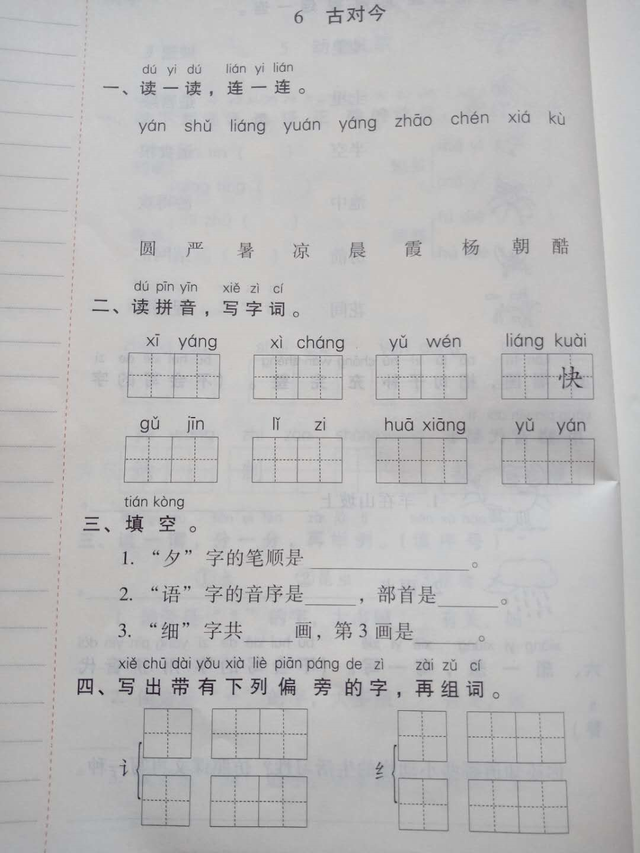 6 古对今
dú yi dú lián yi lián
一、读一读，连一连。
yán shǔ liáng yuán yáng zhāo chén xiá kù
圆 严 暑 凉 晨 霞 杨 朝 酷
dú pīn yīn xiě zì cí
二、读拼音，写字词。
xī yáng xì cháng yǔ wén liáng kuài
快
gǔ jīn lǐ zi huā xiāng yǔ yán
tián kòng
三、填空。
1. “夕”字的笔顺是。
2. “语”字的音序是，部首是。
3. “细”字共画，第3画是。
xiě chū dài yǒu xià liè piān páng de zì zài zǔ cí
四、写出带有下列偏旁的字，再组词。
讠 纟